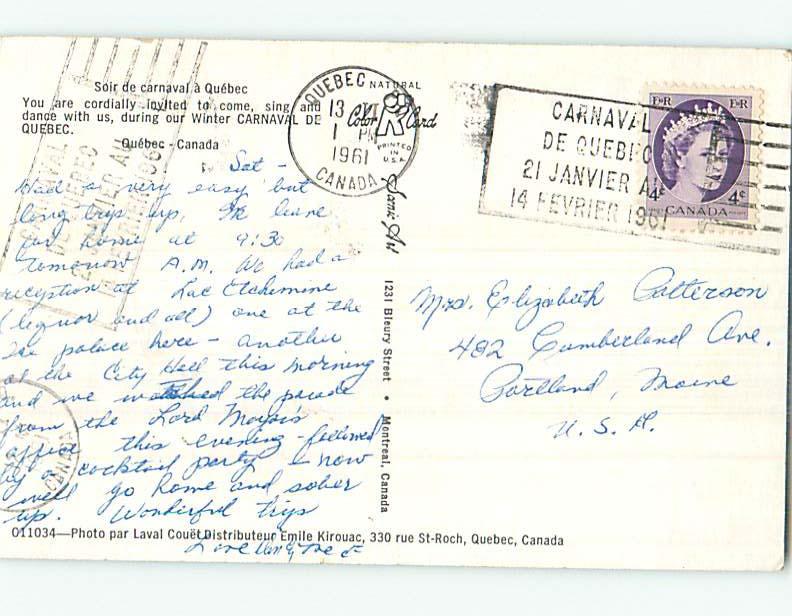 Soir de carnaval à Québec
You are cordially invited to come, sing and
dance with us, during our Winter CARNAVAL DE
QUEBEC.
Québec - Canada
Sat -
Had a very easy but
long trip up, We leave
for home at 9:30
tomorrow A.M. We had a
reception at Lac Etchemine
(liquor and all) one at the
Ice palace here - another
at the City Hall this morning
and we watched the parade
from the Lord Mayor's
office this evening - followed
by a cocktail party - now
we'll go home and sober
up. Wonderful trip
Love
QUEBEC
13
1 PM
1961
CANADA
NATURAL
Color Card
PRINTED
IN
U.S.A.
Scenic Art
1231 Bleury Street • Montreal, Canada
CARNAVAL
DE QUEBEC
21 JANVIER AU
14 FEVRIER 1961
E R E R
4 4c
CANADA
Mrs. Elizabeth Patterson
482 Cumberland Ave.
Portland, Maine
U. S. A.
CANADA
O11034—Photo par Laval Couët Distributeur Emile Kirouac, 330 rue St-Roch, Quebec, Canada